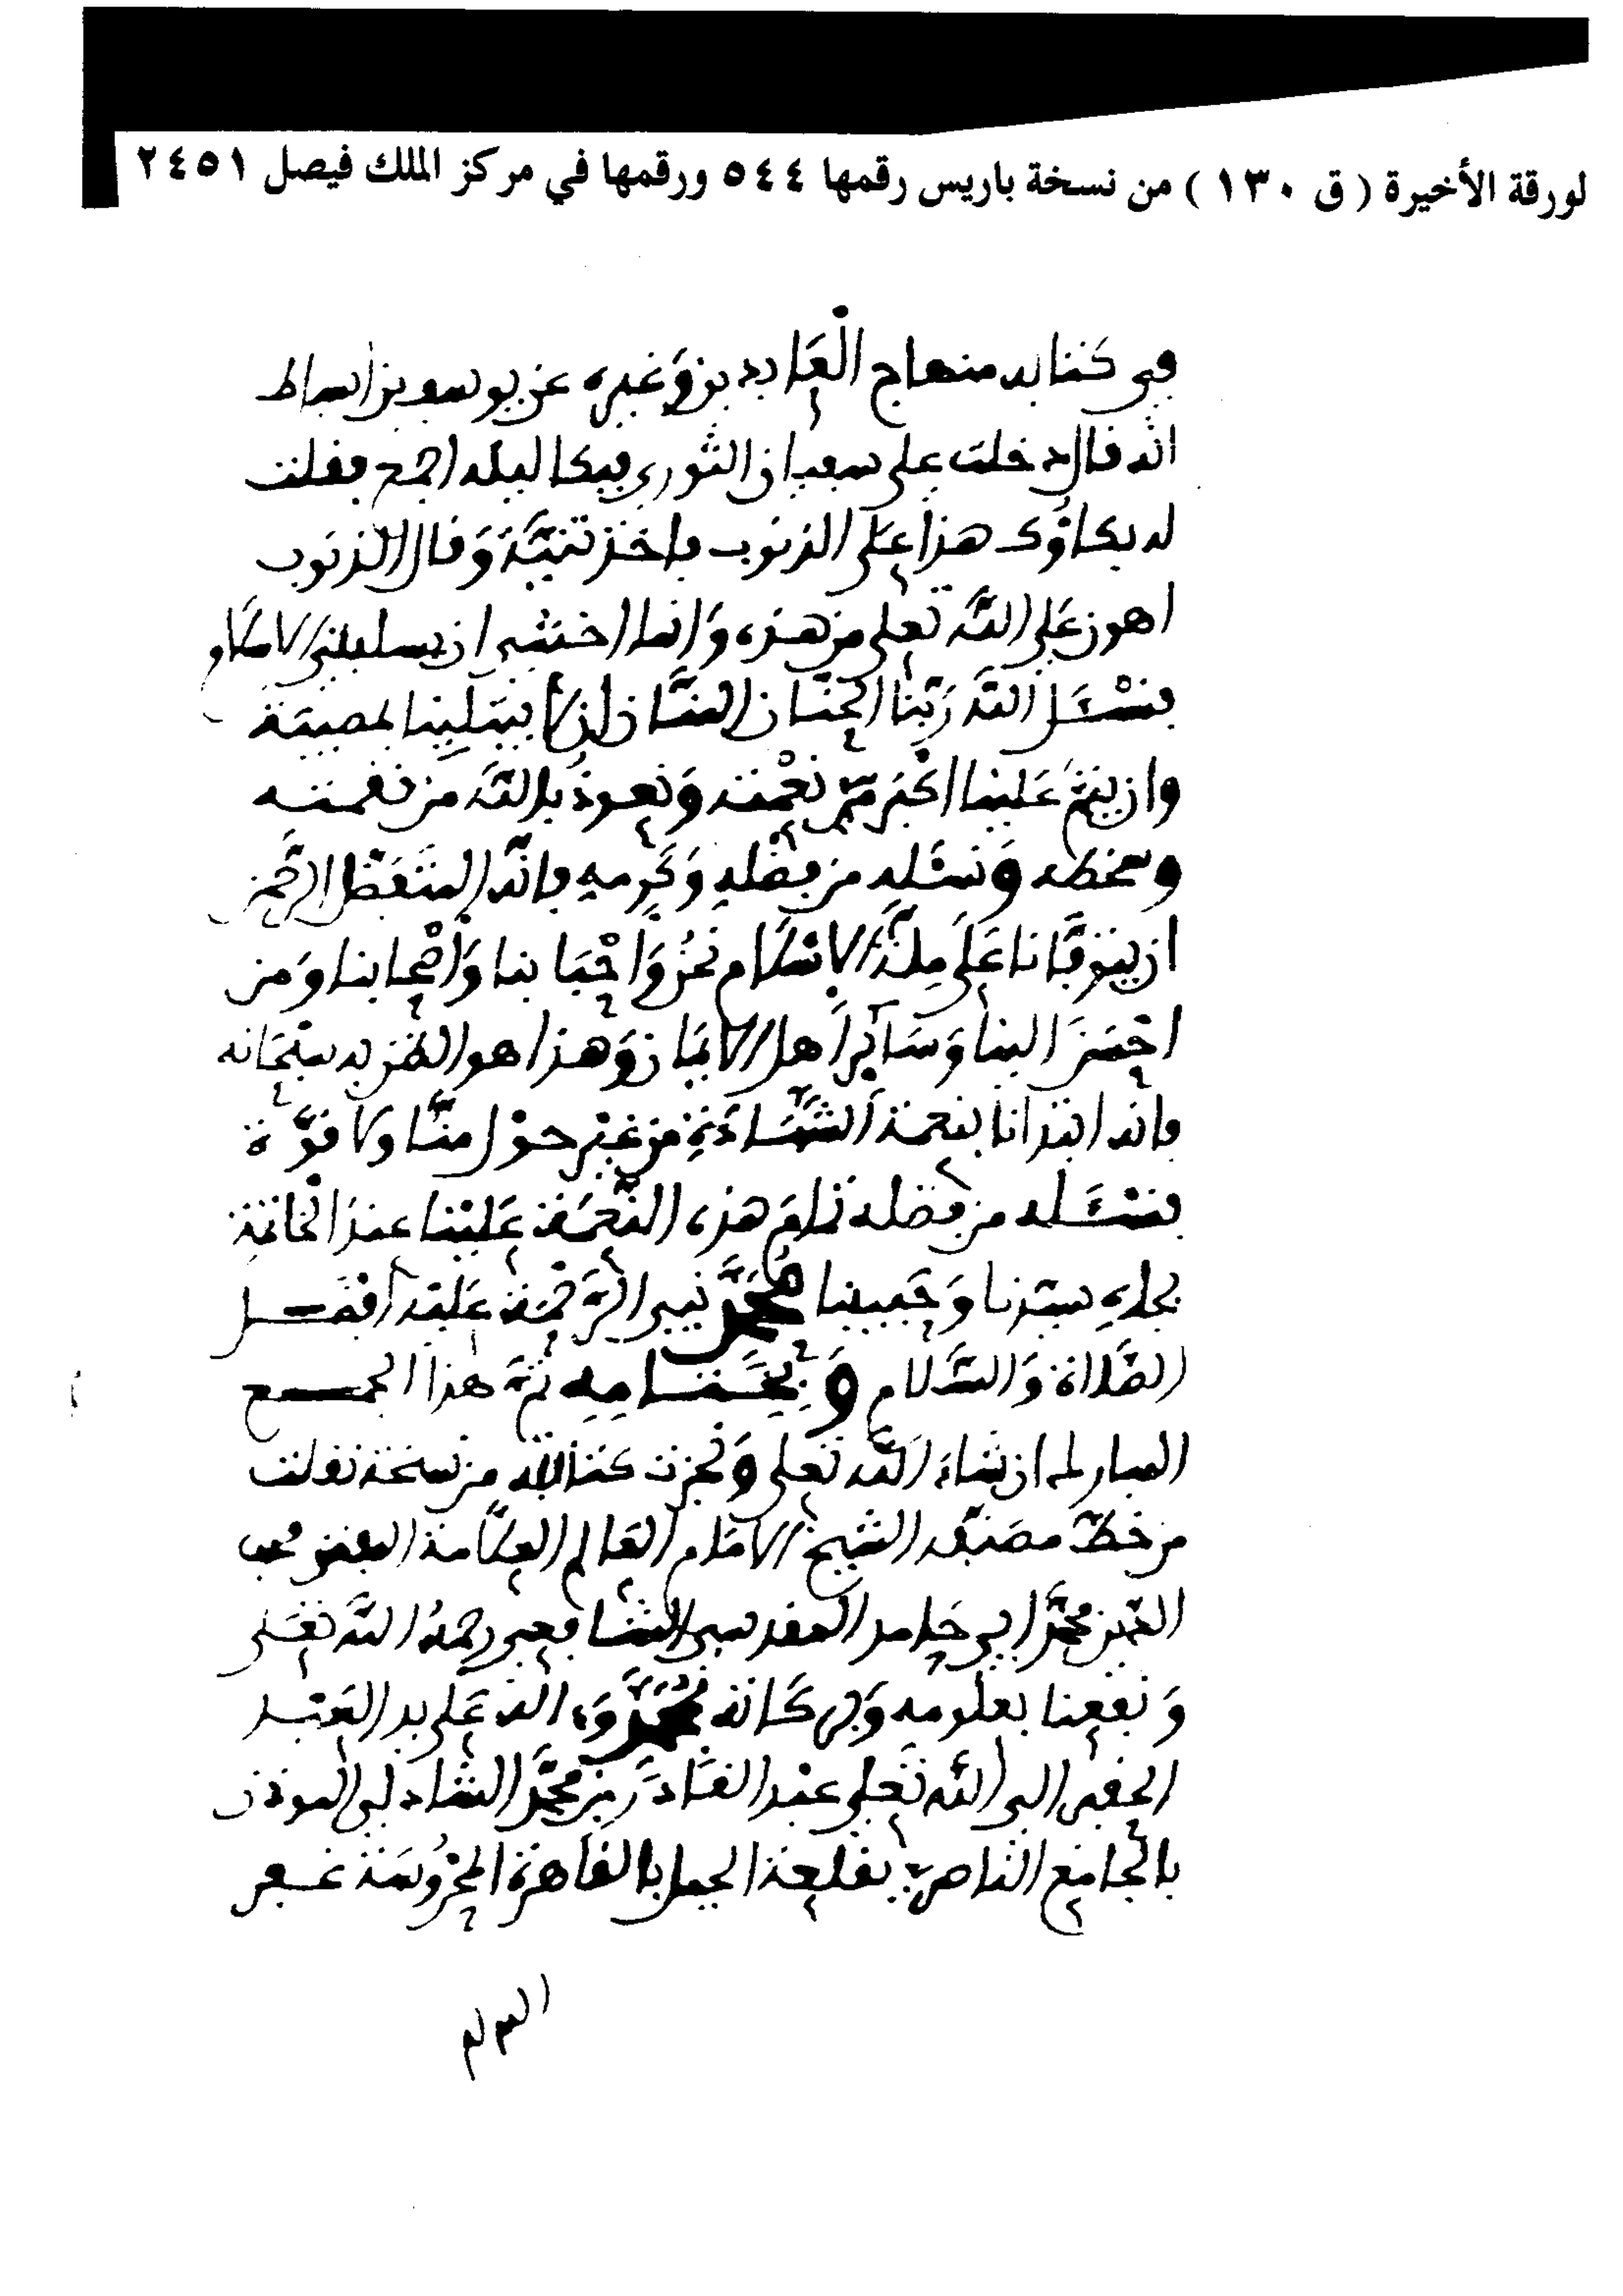 لورقة الأخيرة ( ق ١٣٠ ) من نسخة باريس رقمها ٥٤٤ ورقمها في مركز الملك فيصل ٢٤٥١
في كتابه منهاج الْعَابدين وَغيره عن يوسف بن اسباط
انّه قال دخلت على سفيان الثوري فبكا ليله اجمع فقلت
له بكاؤك هذا عَلى الذنوب فاخذ تبنَةً وَقال الذنوب
اهون عَلى اللَّه تعلى من هذه وَانما اخشى ان يسلبني الاسلام
فنسْئَل اللَّه رَبّنا الحنّان المنّان ان لا يبتلينا بمصيبَة
وان يتمّ عَلينا اكبر نعْمته وَنعوذ باللَّه من نقمته
وسخطه وَنسئله من فضله وَكرمه فانّه المتفضّل الرحمن
ان يتوفّانا عَلى مِلّة الاسلام نحن وَاحْبَابنا وَاصْحابنا وَمن
احْسَنَ الينا وَسَآئر اَهل الايمان وَهذا هو الظن به سبْحَانه
فانه ابتدانا بنعمة الشَّهَادَة من غيْر حوْل منّا ولا قوّة
فنسْئَله من فضله تمام هذه النّعْمَة عَليْنا عندَ الخاتمة
بجاهِ سيّدنا وَحَبيبنا مُحَمَّد نبي الرَّحْمَة عَليه اَفضَل
الصَّلاة وَالسَّلام وَبِخِتَامِهِ تمَّ هذا الجمع
المبارك ان شاء اَللَّه تعلى وَنجزت كتابته من نسخة نقلت
من خطّ مصنّفه الشيخ الامَام العَالم العلاّمة محب
الدّين محمَّد ابي حَامد المقدسي الشافعي رحمهُ اللَّه تعَلى
وَنفعنا بعلومه وَبركاته بمُحَمَّد وَءاله عَلى يد العَبْد
الحقير الى اللَّه تعَلى عبْد القَادر بن محمَّد الشاذلي الموذن
بالجَامع النّاصري بقلعة الجبل بالقَاهرة المحْرُوسَة غفر